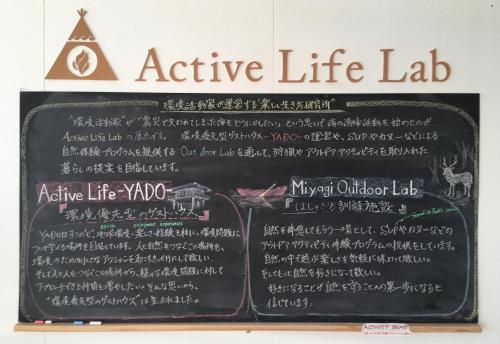 Active Life Lab
環境活動家が運営する"楽しい生き方研究所"
"環境活動家"が"震災で失われてしまった海をどうにかしたい"という思いで海の清掃活動を始めたのが
Active Life Labの原点です。環境優先型ゲストハウス-YADO-の運営や、SUPやカヌーなどによる
自然体験プログラムを提供するOutdoor Labを通して、狩猟やアウトドアアクティビティを取り入れた
暮らしの提案を目指しています。
Active Life-YADO-
『環境優先型のゲストハウス』
YADOは3つのど、地球環境・楽しさ・経験を軸に、環境問題に
ついて学べる場所を目指しています。人と自然をつなぐこの場所を、
環境のための小さなアクションを起こすきっかけにして欲しい。
そして人と人をつなぐこの場所から、様々な環境問題に対して
アプローチできる仲間を増やしたい。そんな思いから、
"環境優先型のゲストハウス"は生まれました。
Miyagi Outdoor Lab
『はしご3訓練施設』
自然を体感してもらう一環として、SUPやカヌーなどの
アウトドアアクティビティ体験プログラムの提供をしています。
自然の中で遊ぶ楽しさを気軽に味わって欲しい。
そしてもっと自然を好きになって欲しい。
好きになることが自然を守ることへの第一歩になると
信じています。
ACTIVITY BOAD